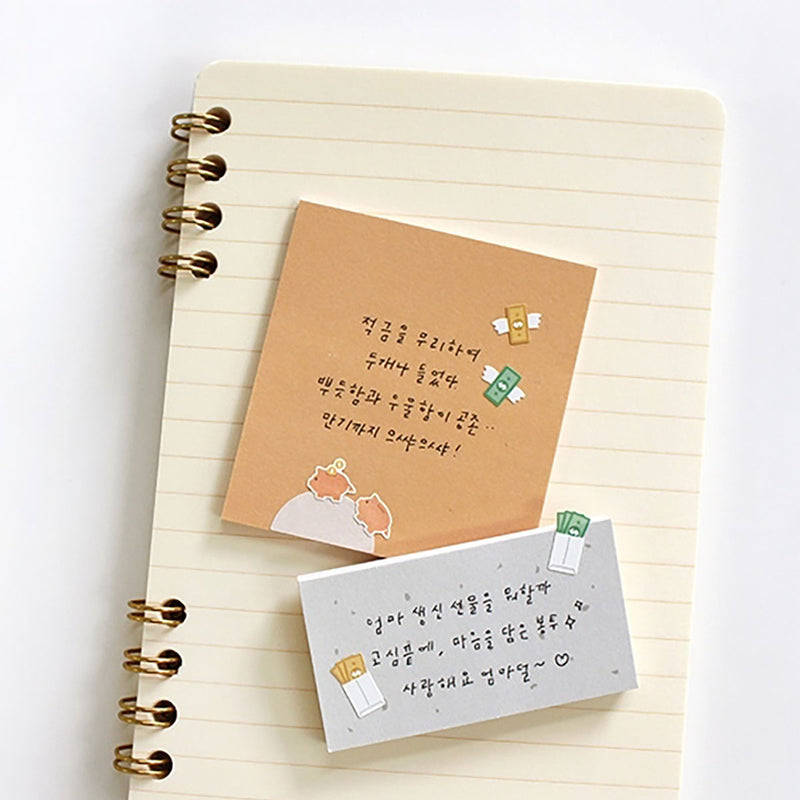 적금을 무리하여
두개나 들었다.
뿌듯함과 우울함이 공존..
만기까지 으샤으샤!
엄마 생신 선물을 뭐할까
고심끝에, 마음을 담은 봉투
사랑해요 엄마덜~ ♡